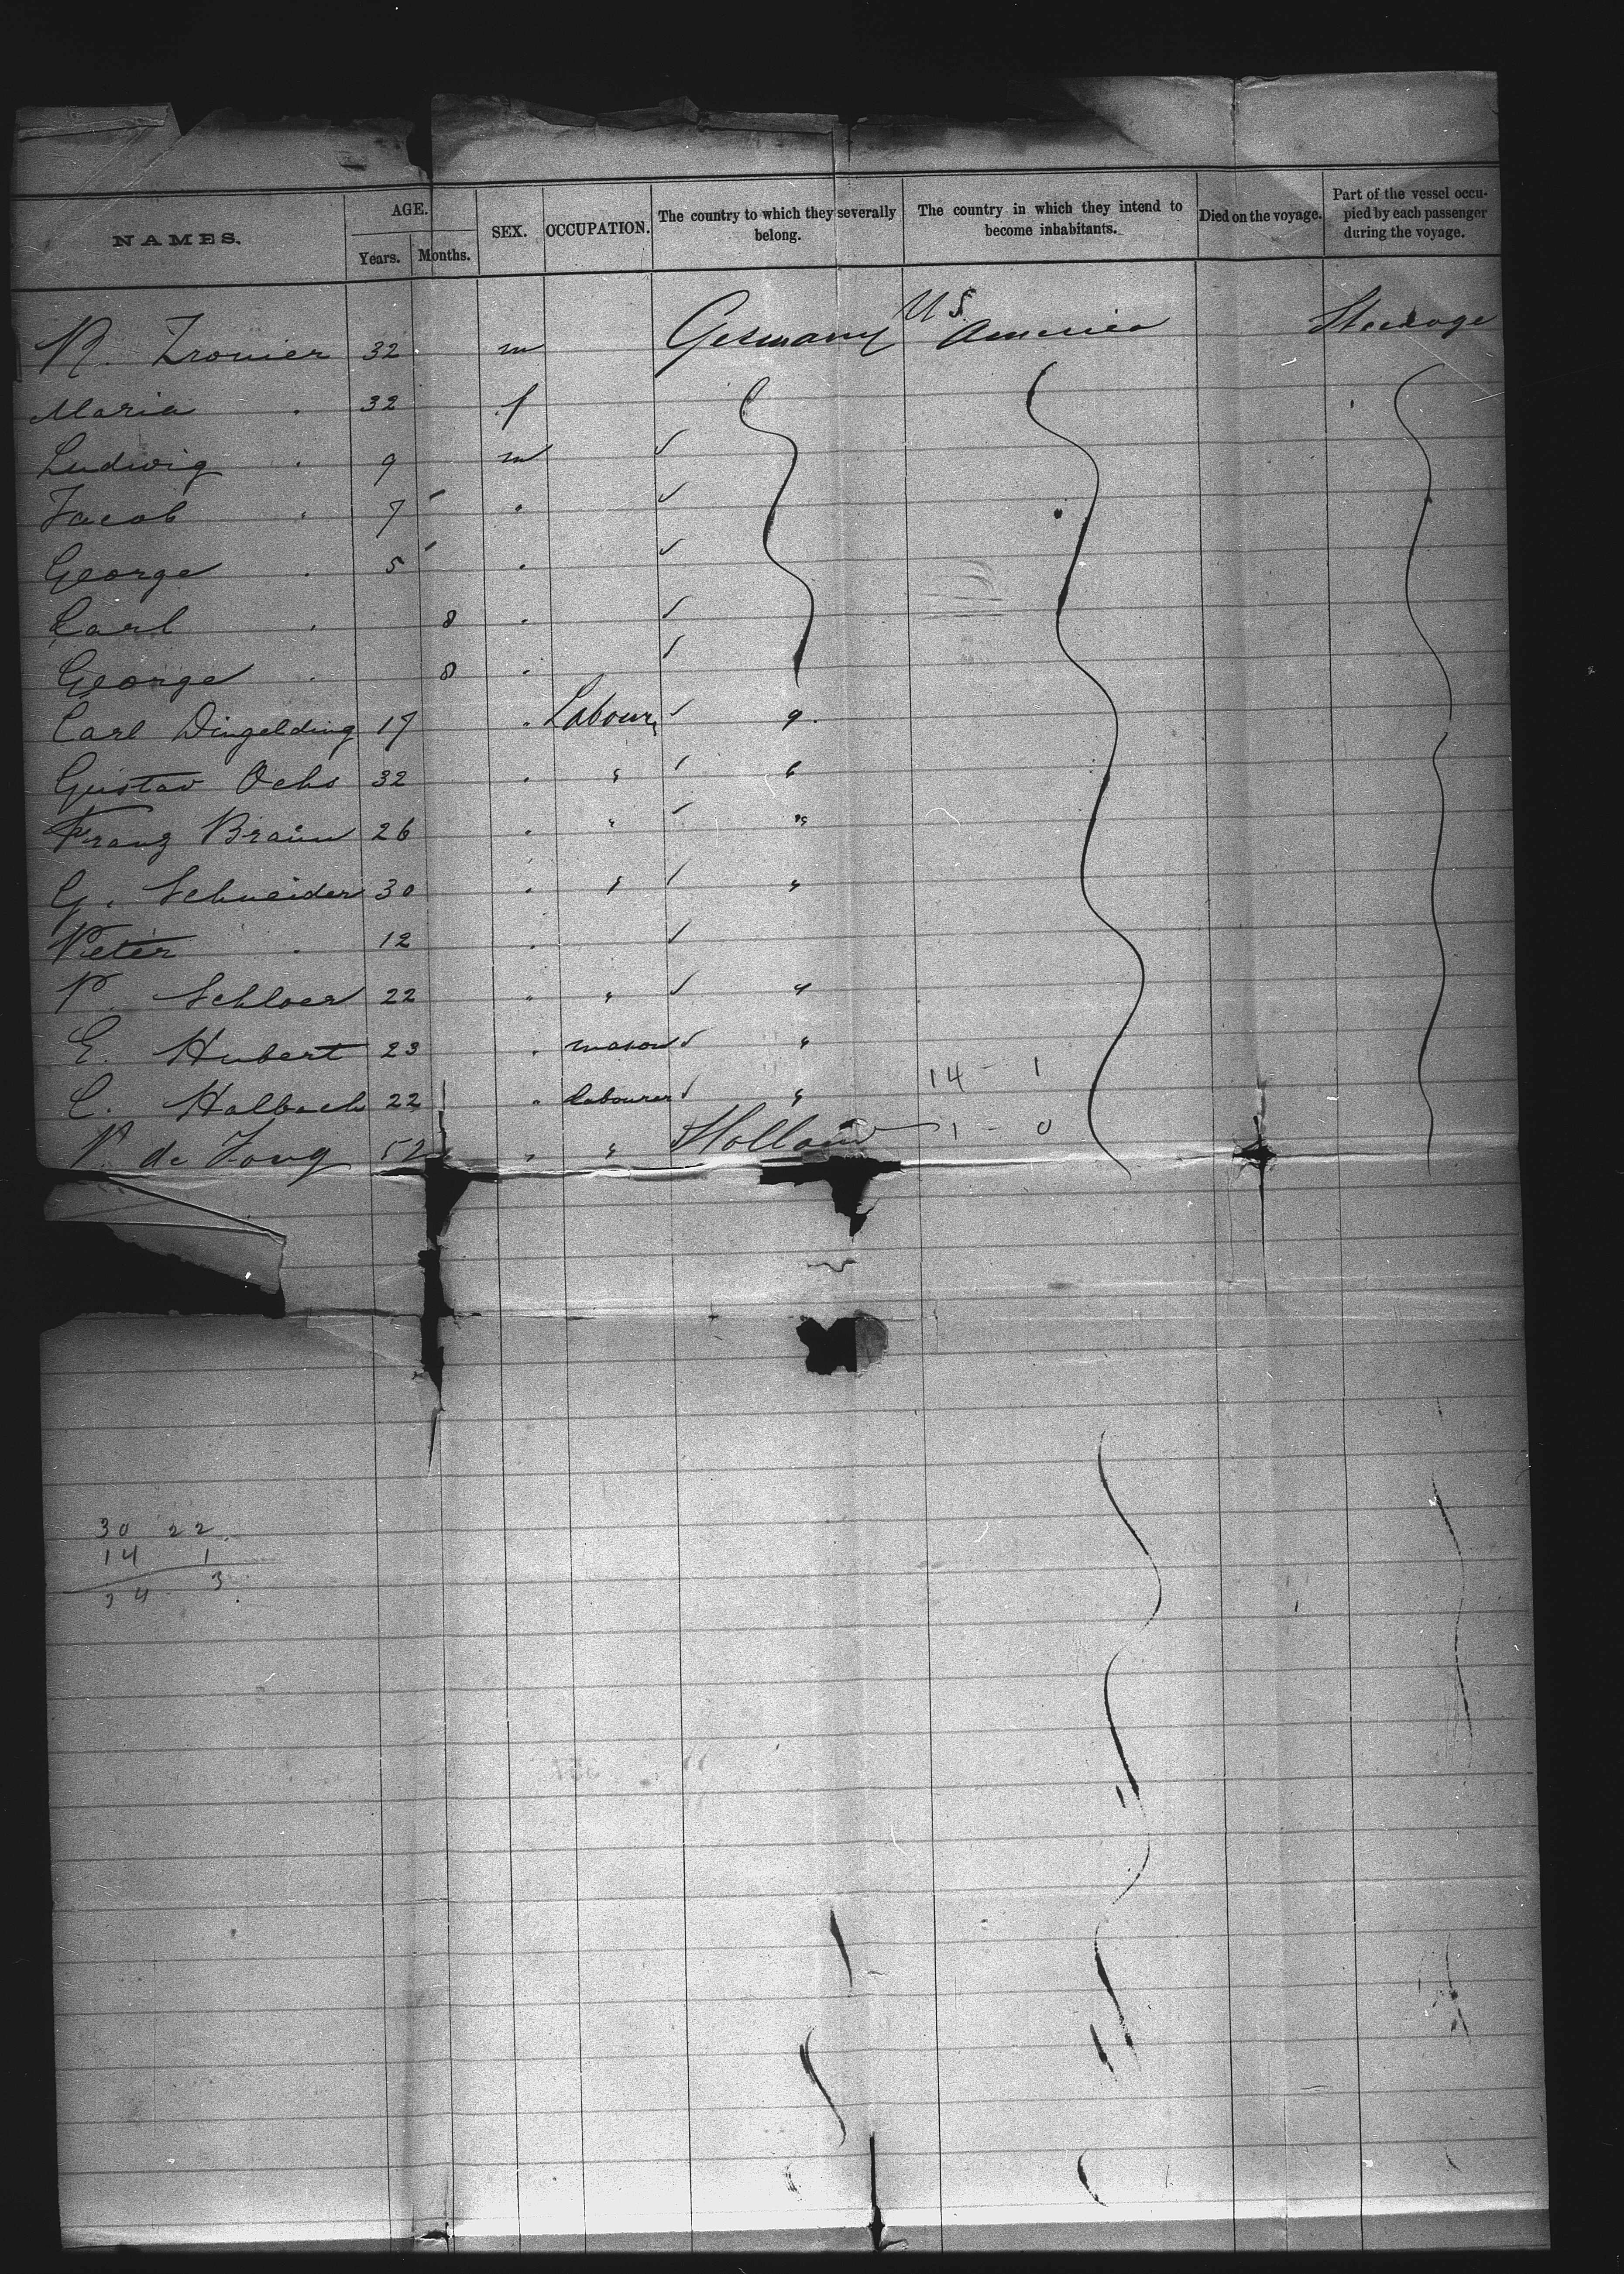 NAMES. AGE. Years. Months. SEX. OCCUPATION. The country to which they severally belong. The country in which they intend to become inhabitants. Died on the voyage. Part of the vessel occupied by each passenger during the voyage.
32 m Germany U S America Steerage
Maria . 32 f
Ludwig . 9 m ✓
Jacob . 7 . ✓
George . 5 . ✓
Carl . 8 . ✓
George . 8 . ✓
Carl Dingelding 17 . Labour ✓
Gustav Ochs 32 . " ✓ "
Franz Braun 26 . " ✓ "
G. Schneider 30 . " ✓ "
Peter . 12 . ✓
P. Schloer 22 . " ✓ "
E. Hubert 23 . mason ✓ "
C. Halbach 22 . labourer ✓ " 14 - 1
de Jong 52 . " Holland 1 - 0
30 22
14 1
3